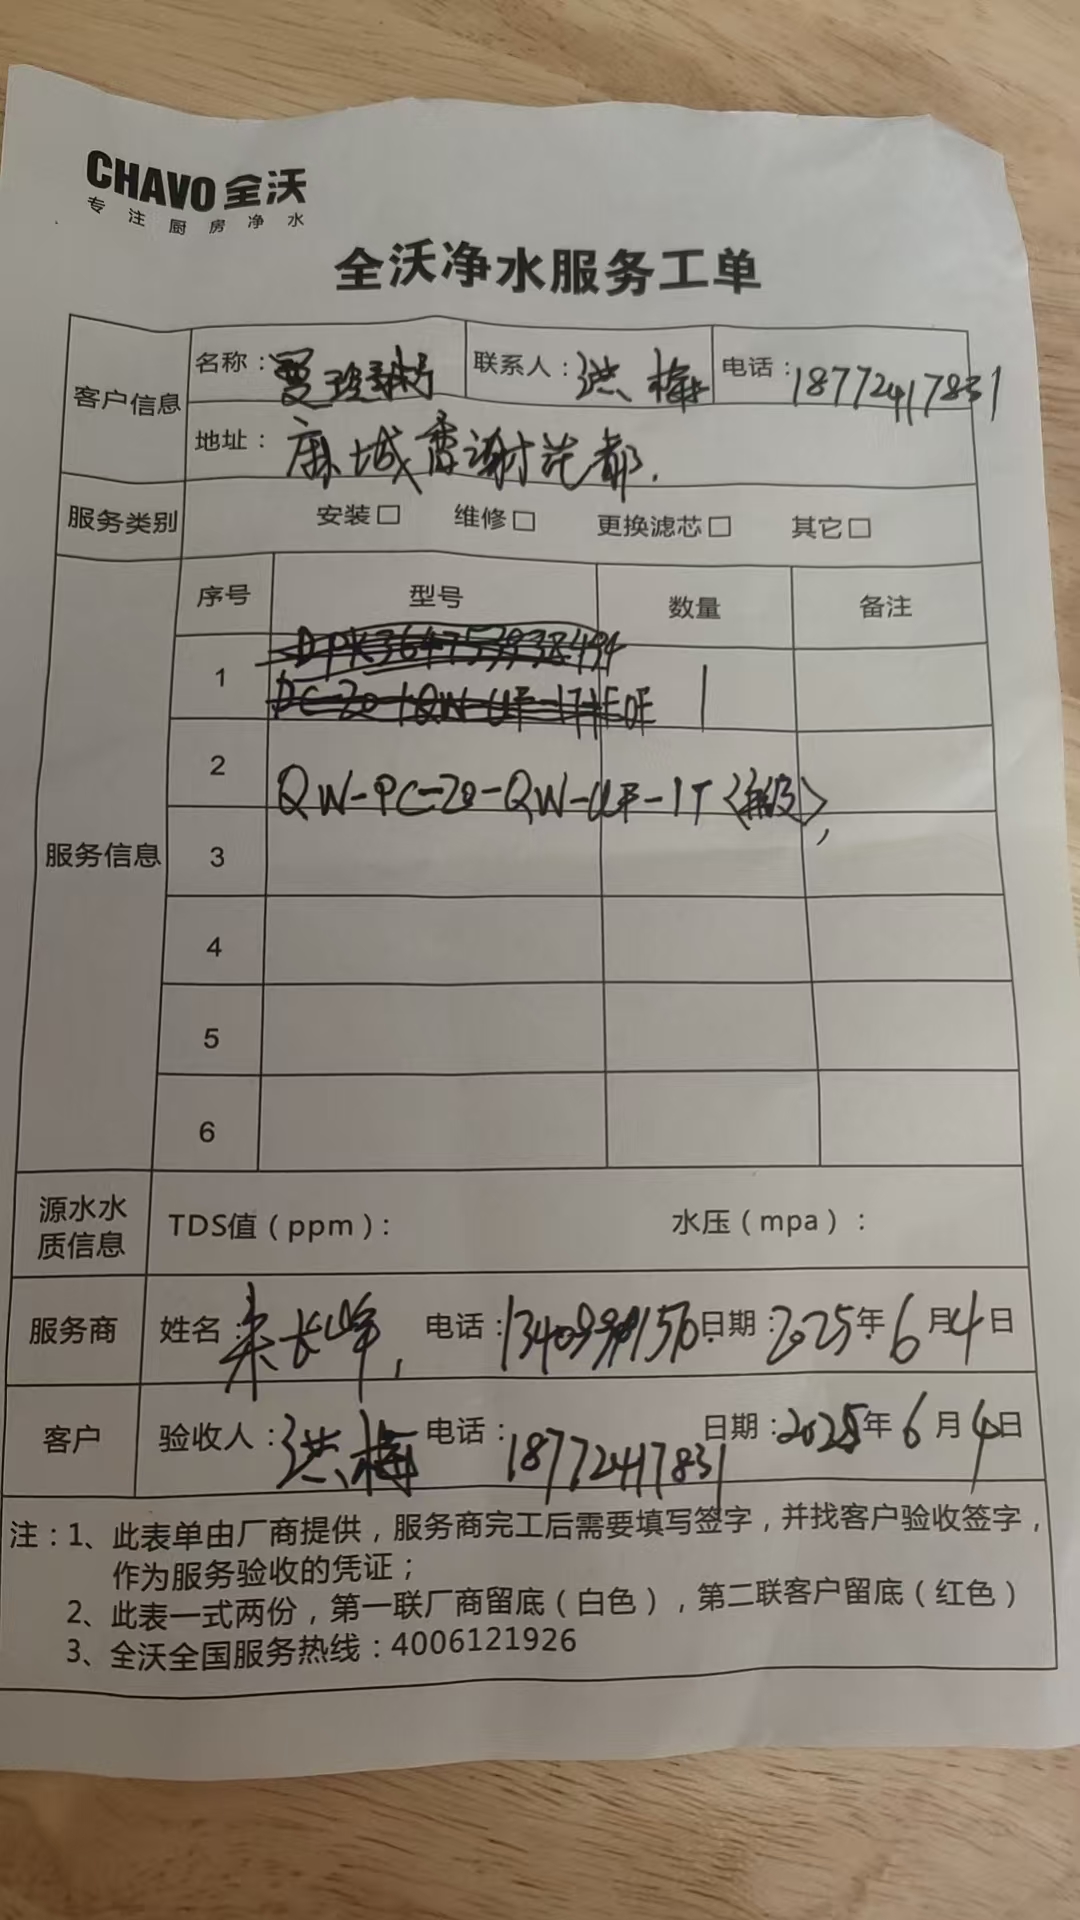 CHAVO全沃
专注厨房净水
全沃净水服务工单
客户信息
名称： 联系人：洪梅 电话：18772417831
地址：麻城 花都.
服务类别 安装□ 维修□ 更换滤芯□ 其它□
服务信息
序号 型号 数量 备注
1 1
2 QW-PC-20-QW-UF-1T
3
4
5
6
源水水质信息 TDS值（ppm）： 水压（mpa）：
服务商 姓名：宋长峰， 电话： 日期：2025年6月4日
客户 验收人：洪梅 电话：18772417831 日期：2025年6月4日
注：1、此表单由厂商提供，服务商完工后需要填写签字，并找客户验收签字，
作为服务验收的凭证；
2、此表一式两份，第一联厂商留底（白色），第二联客户留底（红色）
3、全沃全国服务热线：4006121926